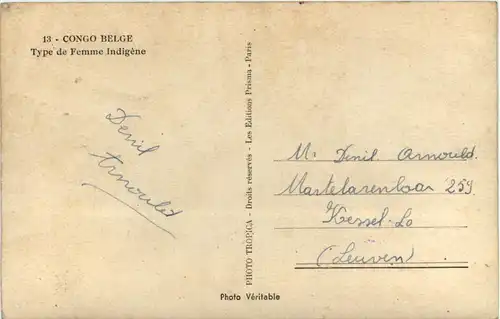 13 - CONGO BELGE
Type de Femme Indigène
Denil
Arnould
PHOTO TROPICA - Droits réservés - Les Editions Prisma - Paris
Mr Denil Arnould
Martelarenlaan 259
Kessel-Lo
(Leuven)
Photo Véritable